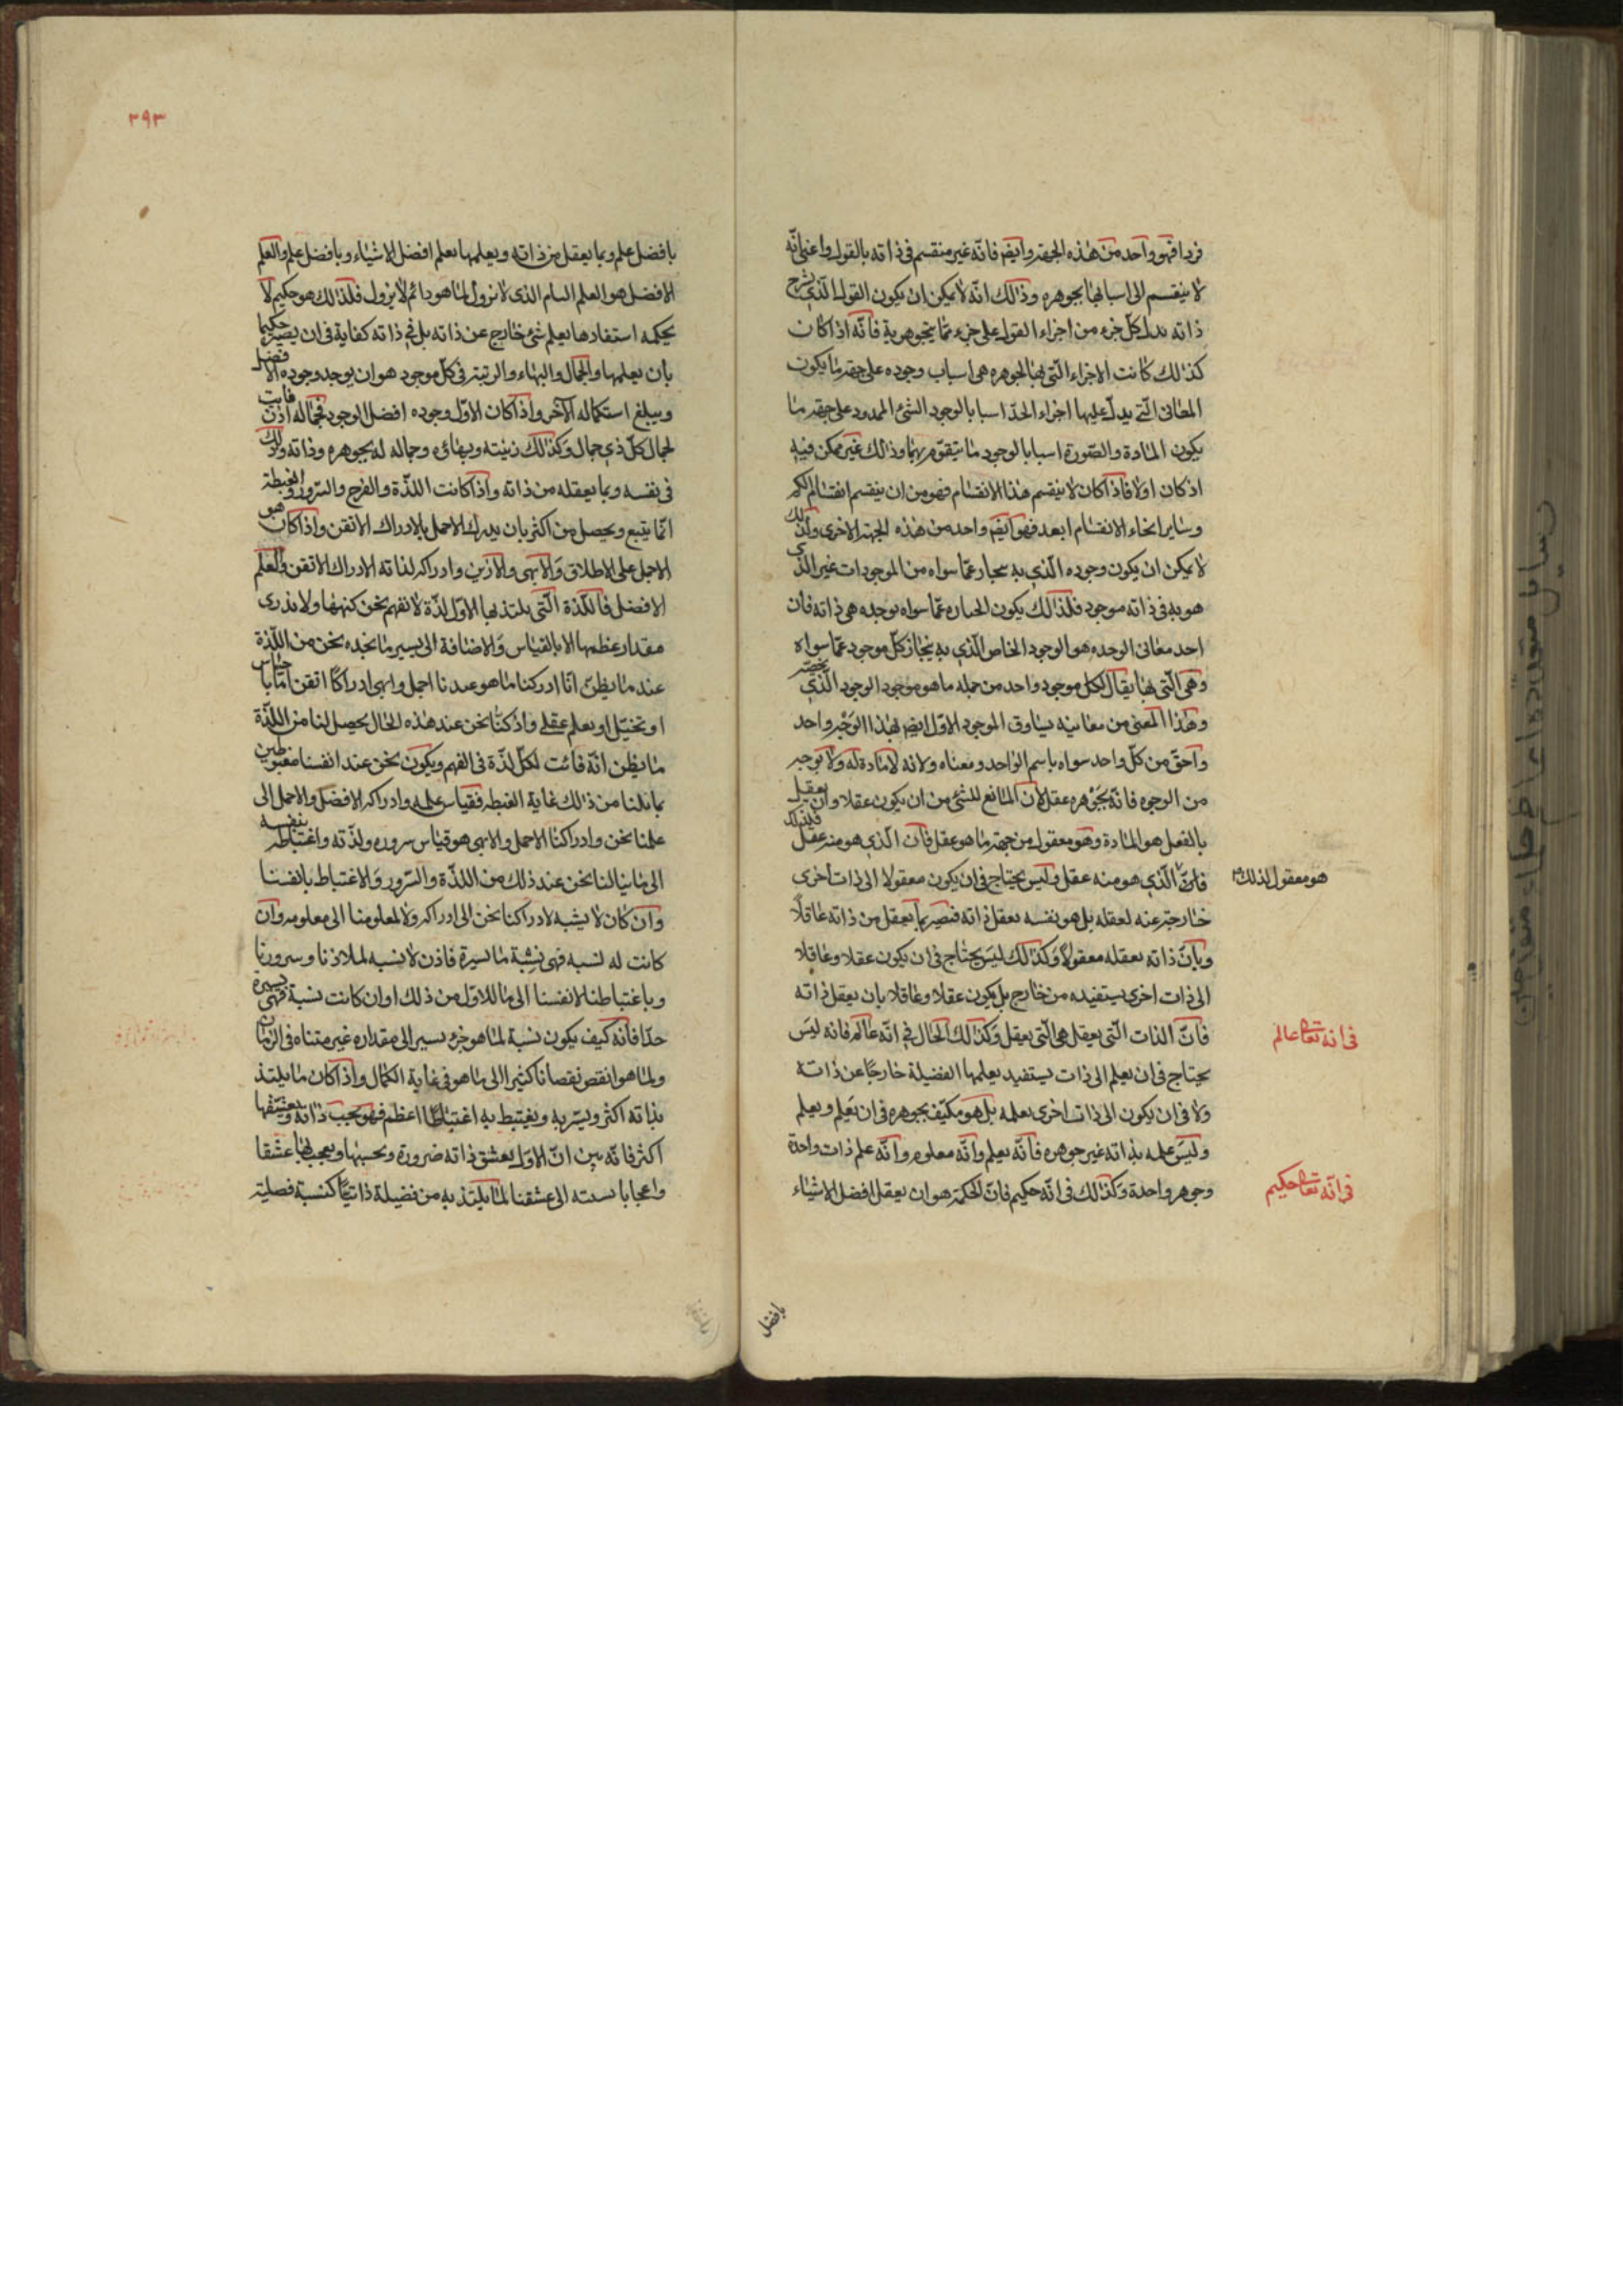 فردا فهو واحد من هذه الجهة وايضا فانه غير منقسم فى ذاته بالقول واعنى انه
لا ينقسم الى اشيا بها يجوهره وذلك انه لا يمكن ان يكون القول الذى يشرح
ذاته يدل كل جزء من اجزاء القول على جزء مما يتجوهر به فانه اذا كان
كذلك كانت الاجزاء التى بها الجوهره هى اسباب وجوده على جهة ما يكون
المعانى التى يدل عليها اجزاء الحد اسبابا لوجود الشئ المحدود على جهة ما
يكون المادة والصورة اسبابا لوجود ما يتقوم بهما وذلك غير ممكن فيه
اذ كان اولا فاذا كان لا ينقسم هذا الانقسام فهو من ان ينقسم انقسام الكم
وساير انحاء الانقسام ابعد فهو ايضا واحد من هذه الجهة الاخرى ولذلك
لا يمكن ان يكون وجوده الذى به ينحاز عما سواه من الموجودات غير الذى
هو به فى ذاته موجود فلذلك يكون انحيازه عما سواه بوحده هى ذاته فان
احد معانى الوحده هو الوجود الخاص الذى به ينحاز كل موجود عما سواه
وهى التى بها يقال لكل موجود واحد من جهة ما هو موجود الوجود الذى يخصه
وهذا المعنى من معانيه يساوق الموجود الاول ايضا بهذا الوجه واحد
واحق من كل واحد سواه باسم الواحد ومعناه ولانه لا مادة له ولا بوجه
من الوجوه فانه بجوهره عقل لان المانع للشئ من ان يكون عقلا وان يعقل
بالفعل هو المادة وهو معقول من جهة ما هو عقل فان الذى هو منه عقل فلذلك
فان الذى هو منه عقل وليس يحتاج فى ان يكون معقولا الى ذات اخرى
هو معقول لذلك
خارجة عنه تعقله بل هو نفسه يعقل ذاته فيصير بما يعقل من ذاته عاقلا
وبان ذاته يعقله معقولا وكذلك ليس يحتاج فى ان يكون عقلا وعاقلا
الى ذات اخرى يستفيده من خارج بل يكون عقلا وعاقلا بان يعقل ذاته
فان الذات التى يعقل هى التى يعقل وكذلك الحال فى انه عالم فانه ليس
فى انه تعالى عالم
يحتاج فى ان يعلم الى ذات يستفيد بعلمها الفضيلة خارجا عن ذاته
ولا فى ان يكون الى ذات اخرى يعلمه بل هو مكتف بجوهره فى ان يعلم ويعلم
وليس علمه بذاته غير جوهره فانه يعلم وانه معلوم وانه علم ذات واحدة
وجوهر واحدة وكذلك فى انه حكيم فان الحكمة هو ان يعقل افضل الاشياء
فى انه تعالى حكيم
بافضل
٣٩٣
بافضل علم وبما يعقل من ذاته ويعلمها يعلم افضل الاشياء وبافضل علم والعلم
الافضل هو العلم التام الذى لا يزول لما هو دائم لا يزول فلذلك هو حكيم لا
بحكمه استفادها بعلم شئ خارج عن ذاته بل فى ذاته كفاية فى ان يصير حكيما
بان يعلمها والجمال والبهاء والزينة فى كل موجود هو ان يوجد وجوده الافضل
ويبلغ استكماله الآخر واذا كان الاول وجوده افضل الوجود فجماله اذن فايت
لجمال كل ذى جمال وكذلك زينته وبهاؤه وجماله له بجوهره وذاته وذلك
فى نفسه وبما يعقله من ذاته واذا كانت اللذة والفرح والسرور والغبطة
انما يتبع ويحصل من اكثر بان يدرك الاجمل بالادراك الاتقن واذا كان هو
الاجمل على الاطلاق والابهى والازين وادراكه لذاته الادراك الاتقن والعلم
الافضل فاللذة التى يلتذ بها الاول لذة لا نفهم نحن كنهها ولا ندرى
مقدار عظمها الا بالقياس والاضافة الى يسير ما نجده نحن من اللذة
عند ما يظن انا ادركنا ما هو عندنا اجمل وابهى ادراكا اتقن اما باحساس
او تخيل او بعلم عقلى واذ كنا نحن عند هذه الحال يحصل لنا من اللذة
ما يظن انه فائت لكل لذة فى الفهم ويكون نحن عند انفسنا مغبوطين
بما نلنا من ذلك غاية الغبطه فقياس علمه وادراكه الافضل والاجمل الى
علمنا نحن وادراكنا الاجمل والابهى هو قياس سروره ولذته واغتباطه بنفسه
الى ما ينالنا نحن عند ذلك من اللذة والسرور والاغتباط بانفسنا
وان كان لا يشبه لادراكنا نحن الى ادراكه ولا لمعلومنا الى معلومه وان
كانت له نسبه فهى نسبة ما يسيرة فاذن لا نسبه لملاذنا وسرورنا
وباغتباطنا لانفسنا الى ما للاول من ذلك او ان كانت نسبة فهى يسيرة
جدا فانه كيف يكون نسبة لما هو جزء يسير الى مقداره غير متناه فى الزمان
ولما هو انقص نقصانا كثيرا الى ما هو فى غاية الكمال واذا كان ما يلتذ
بذاته اكثر ويسر به ويغتبط به اغتباطا اعظم فهو يحب ذاته ويعشقها
اكثر فانه بين ان الاول يعشق ذاته ضرورة ويحبها ويعجب بها عشقا
واعجابا نسبته الى عشقنا لما يلتذ به من فضيلة ذاتنا كنسبة فضيلة